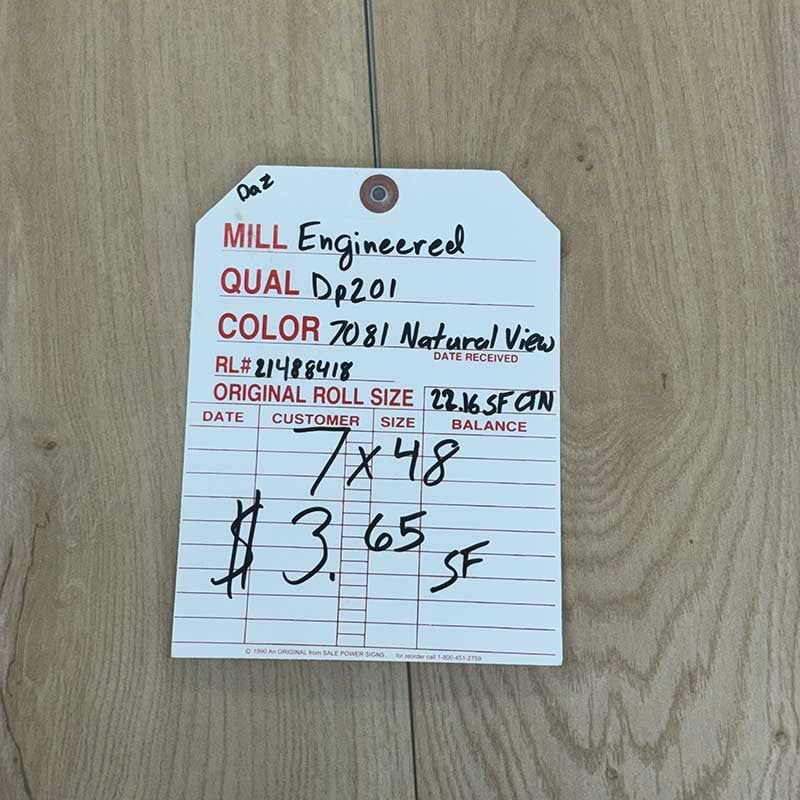 Daz
MILL Engineered
QUAL Dp201
COLOR 7081 Natural View
DATE RECEIVED
RL# 21488418
ORIGINAL ROLL SIZE 22.16 SF CTN
DATE CUSTOMER SIZE BALANCE
7x48
$3.65 SF
© 1990 An ORIGINAL from SALE POWER SIGNS. for reorder call 1-800-451-2759